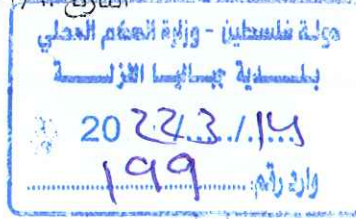 التاريخ
دولة فلسطين - وزارة الحكم المحلي
بلدية جباليا النزلة
2022/3/14
وارد رقم: 199